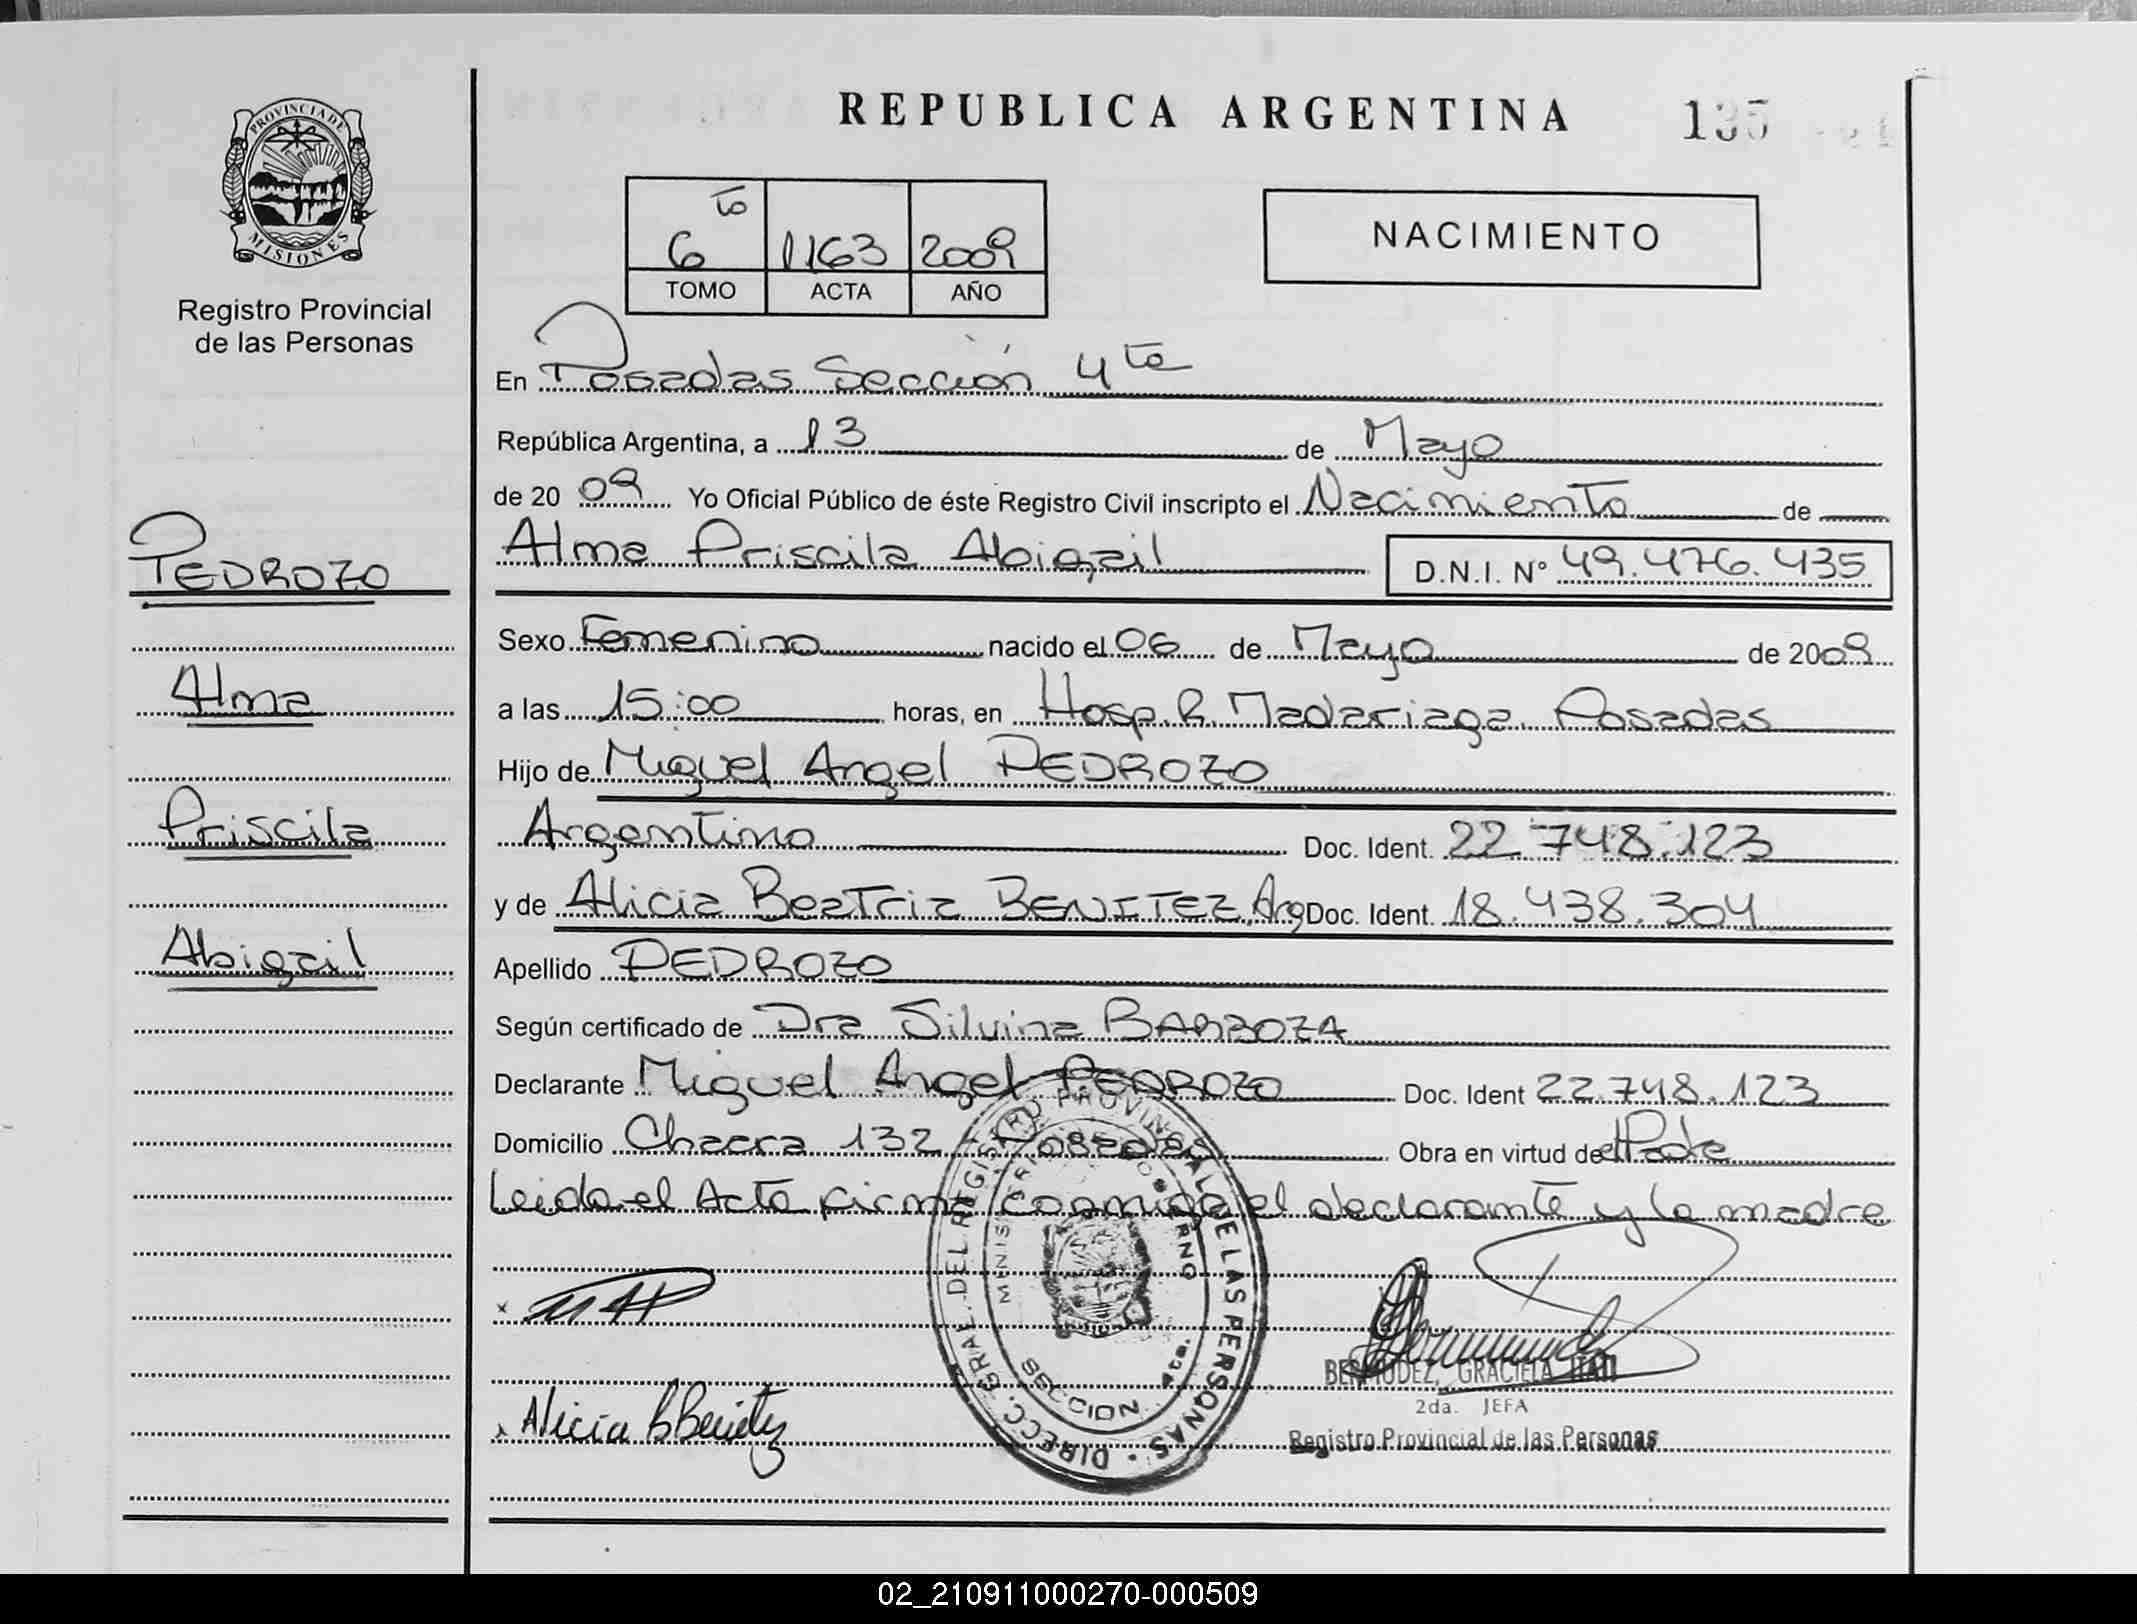 REPUBLICA ARGENTINA
135
PROVINCIA DE
MISIONES
Registro Provincial
de las Personas
PEDROZO
Alma
Priscila
Abigail
6to 1163 2009
TOMO ACTA AÑO
NACIMIENTO
En Posadas Sección 4ta
República Argentina, a 13 de Mayo
de 2009 Yo Oficial Público de éste Registro Civil inscripto el Nacimiento de
Alma Priscila Abigail D.N.I. N° 49.476.435
Sexo Femenino nacido el 06 de Mayo de 2009
a las 15:00 horas, en Hosp. R. Madariaga. Posadas
Hijo de Miguel Angel PEDROZO
Argentino Doc. Ident. 22.748.123
y de Alicia Beatriz BENITEZ, Arg Doc. Ident. 18.438.304
Apellido PEDROZO
Según certificado de Dra Silvina BARBOZA
Declarante Miguel Angel PEDROZO Doc. Ident 22.748.123
Domicilio Chacra 132 Posadas Obra en virtud de
Leida el Acta firma conmigo el declarante y la madre
DIRECC. GRAL. DEL REGISTRO PROVINCIAL DE LAS PERSONAS
SECCION 4ta.
Alicia B Benitez
BERMUDEZ, GRACIELA ITATI
2da. JEFA
Registro Provincial de las Personas
02_210911000270-000509